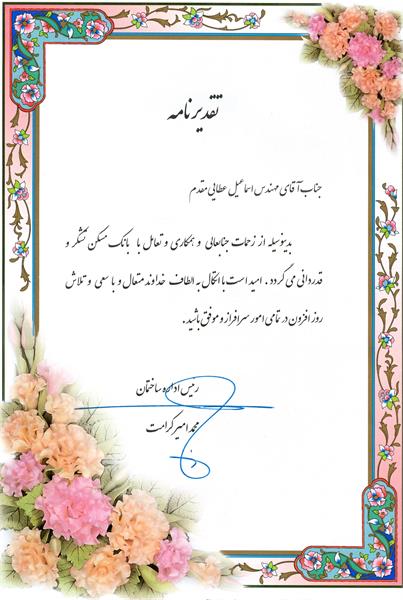 تقدیرنامه
جناب آقای مهندس اسماعیل عطایی مقدم
بدینوسیله از زحمات جنابعالی و همکاری و تعامل با بانک مسکن تشکر و
قدردانی می گردد . امید است با اتکال به الطاف خداوند متعال و با سعی و تلاش
روز افزون در تمامی امور سرافراز و موفق باشید .
رییس اداره ساختمان
محمد امیر کرامت